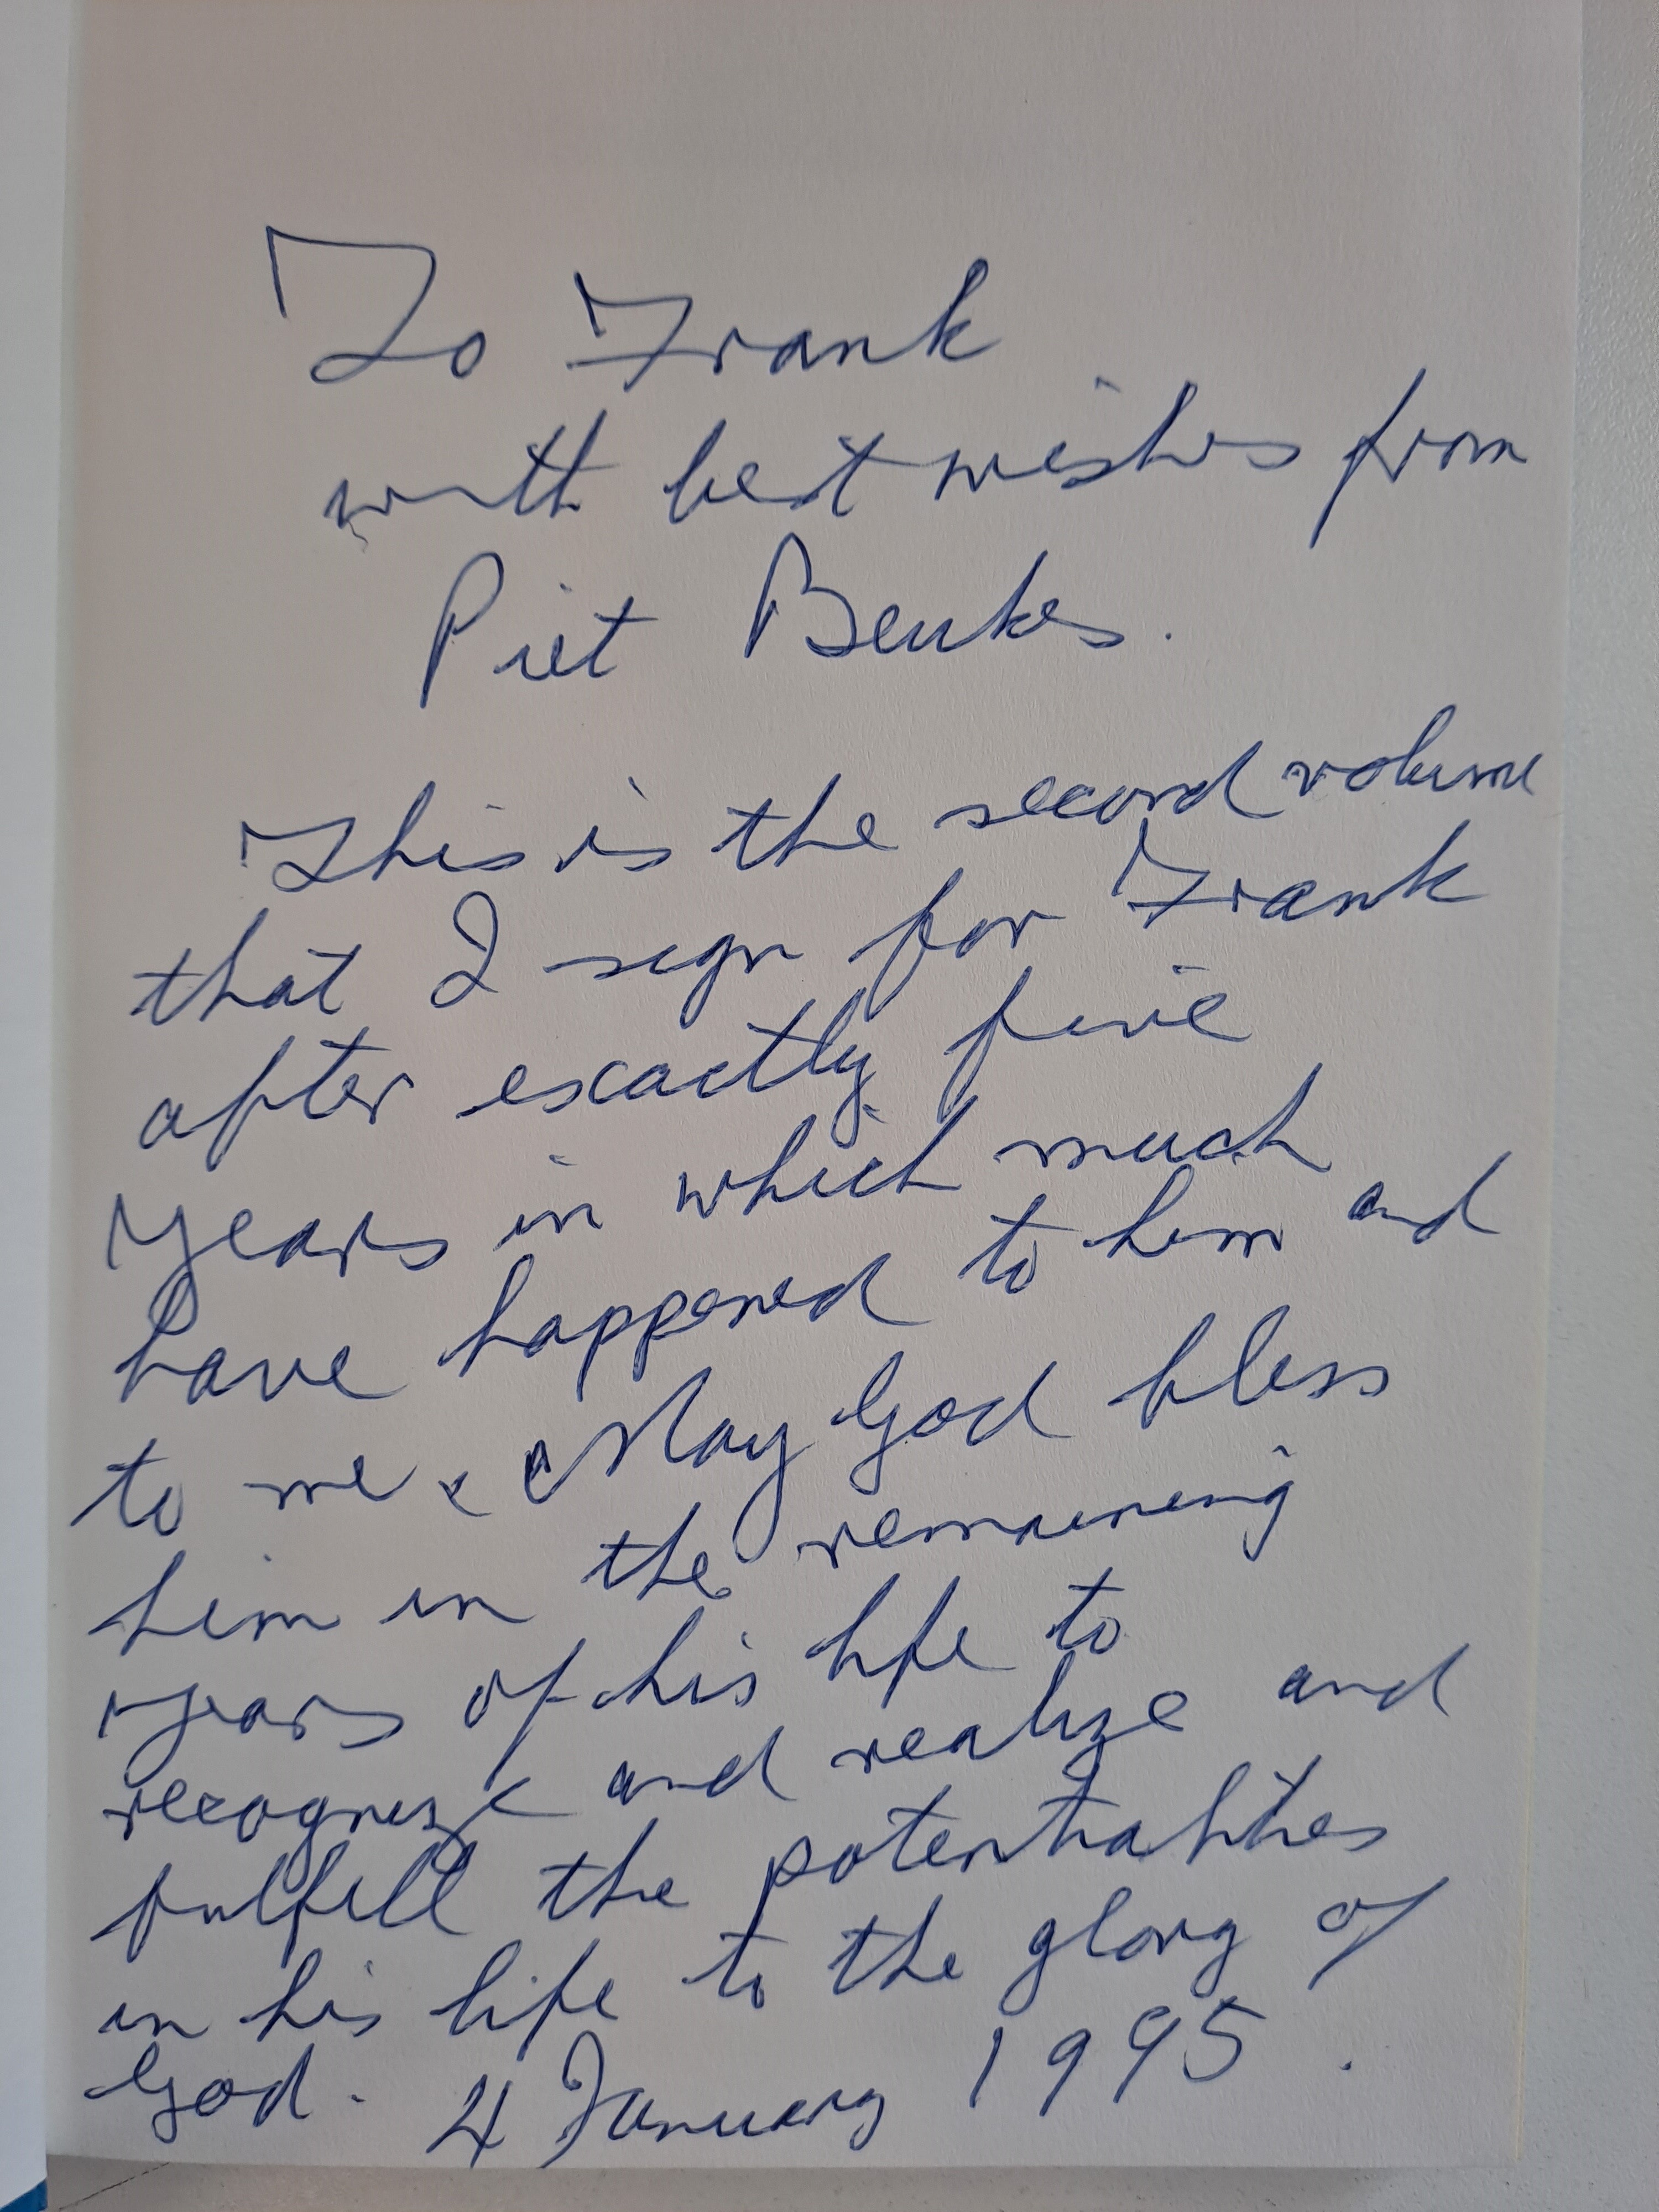 To Frank
with best wishes from
Piet Beukes.
This is the second volume
that I sign for Frank
after exactly five
years in which much
have happened to him and
to me. May God bless
him in the remaining
years of his life to
recognize and realize and
fulfill the potentialities
in his life to the glory of
God. 4 January 1995.